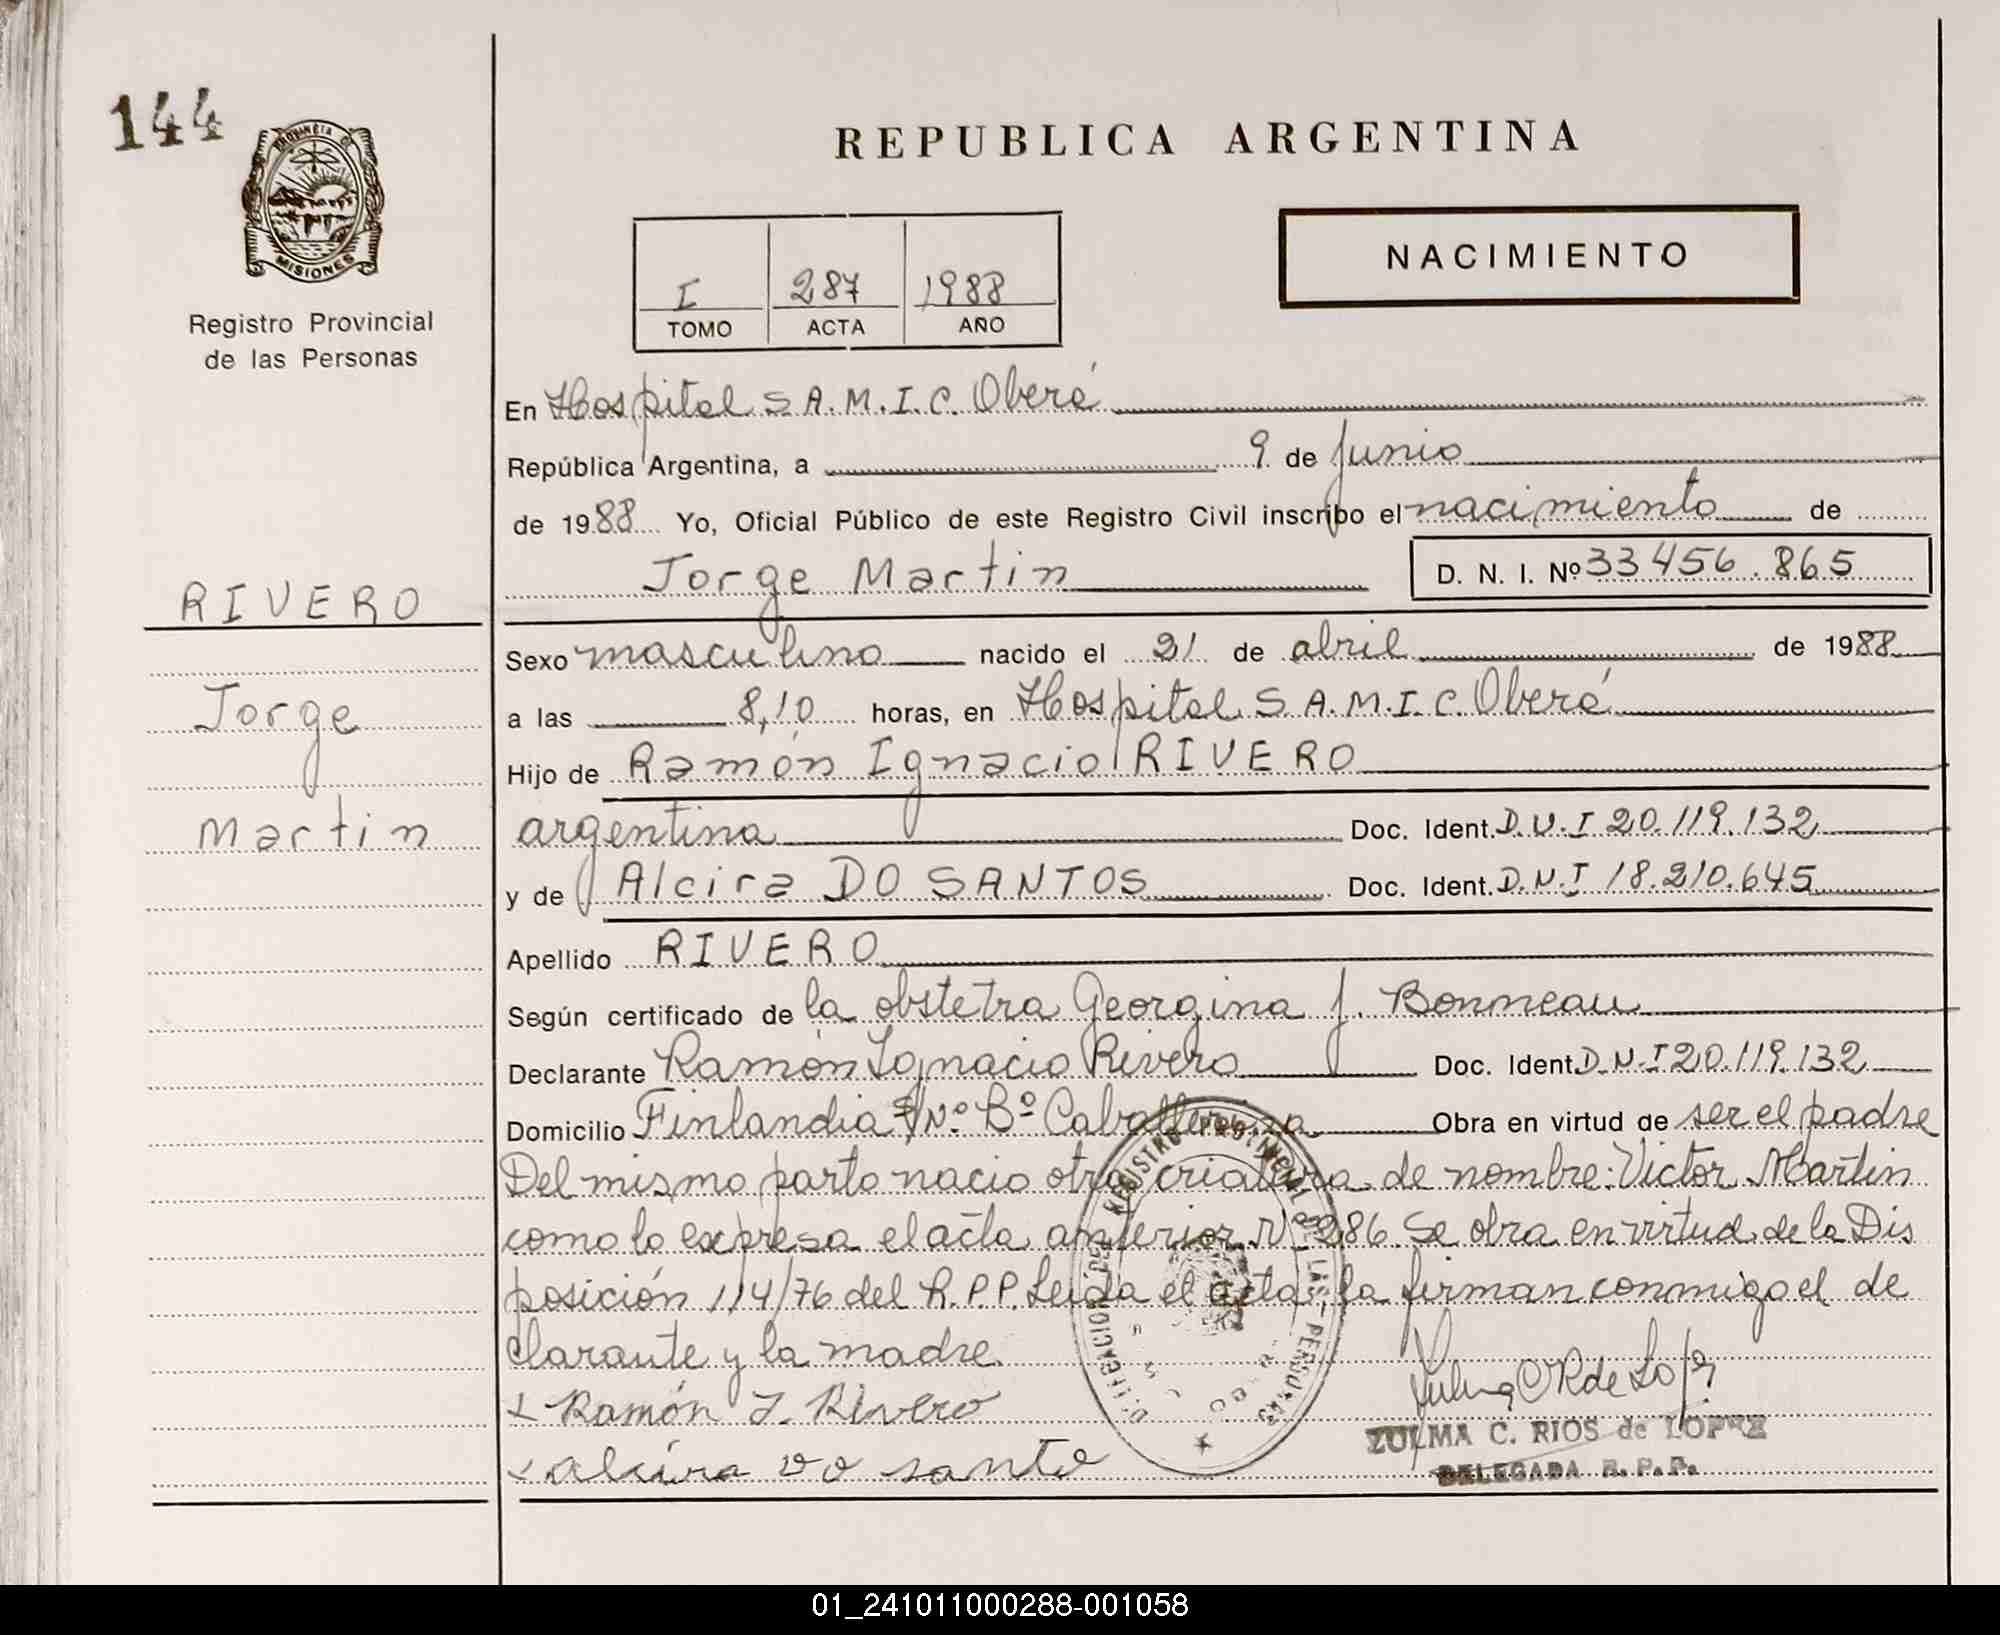 144
PROVINCIA D
MISIONES
Registro Provincial
de las Personas
RIVERO
Jorge
Martin
REPUBLICA ARGENTINA
I 287 1988
TOMO ACTA AÑO
NACIMIENTO
En Hospital S A.M.I.C. Oberá
República Argentina, a 9 de Junio
de 1988 Yo, Oficial Público de este Registro Civil inscribo el nacimiento de
Jorge Martin D. N. I. Nº 33456.865
Sexo masculino nacido el 21 de abril de 1988
a las 8,10 horas, en Hospital S A.M.I.C. Oberá
Hijo de Ramón Ignacio RIVERO
argentina Doc. Ident. D.N.I 20.119.132
y de Alcira DO SANTOS Doc. Ident. D.N.I 18.210.645
Apellido RIVERO
Según certificado de la obstetra Georgina J. Bonneau
Declarante Ramón Ignacio Rivero Doc. Ident. D.N.I 20.119.132
Domicilio Finlandia S/Nº Bº Caballeriza Obra en virtud de ser el padre
Del mismo parto nacio otra criatura de nombre: Victor Martin
como lo expresa el acta anterior Nº 286. Se obra en virtud de la Dis
posición 114/76 del R.P.P. Leida el acta la firman conmigo el de
clarante y la madre
x Ramón I. Rivero
x alcira do santo
REGISTRO PROVINCIAL DE LAS PERSONAS
DELEGACION
MISIONES
Zulma C R de López
ZULMA C. RIOS de LOPEZ
DELEGADA R. P. P.
01_241011000288-001058